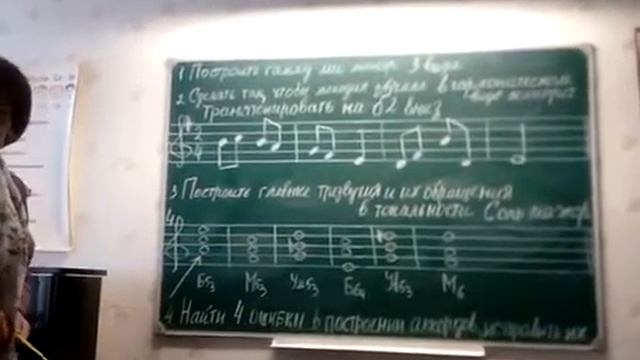 1 Построить гамму ми минор 3 вида
2. Сделать так, чтобы мелодия звучала в гармоническом виде минора
Транспонировать на б2 вниз
2
4
3 Построить главные трезвучия и их обращения
в тональности Соль мажор
4
Б53 М53 Ув53 Б64 Ум53 М6
4 Найти 4 ошибки в построении аккордов, исправить их